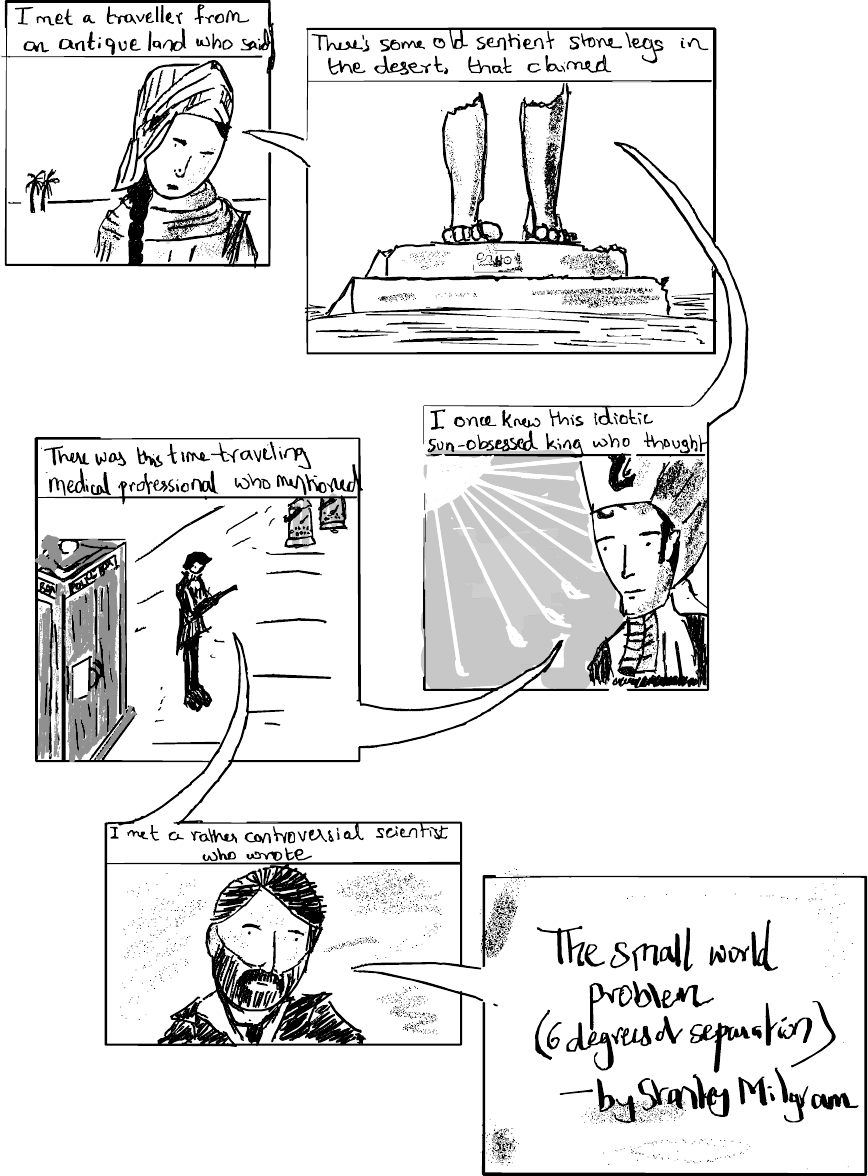 I met a traveller from
an antique land who said
There's some old sentient stone legs in
the desert, that claimed
I once knew this idiotic
sun-obsessed king who thought
There was this time-traveling
medical professional who mentioned
POLICE BOX
I met a rather controversial scientist
who wrote
The small world
problem
(6 degrees of separation)
—by Stanley Milgram